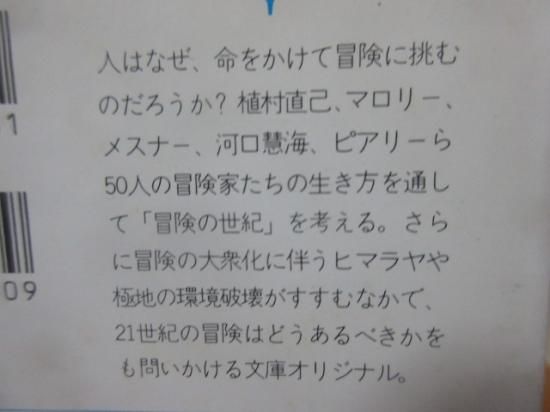 人はなぜ、命をかけて冒険に挑む
のだろうか? 植村直己、マロリー、
メスナー、河口慧海、ピアリーら
50人の冒険家たちの生き方を通し
て「冒険の世紀」を考える。さら
に冒険の大衆化に伴うヒマラヤや
極地の環境破壊がすすむなかで、
21世紀の冒険はどうあるべきかを
も問いかける文庫オリジナル。
1
09